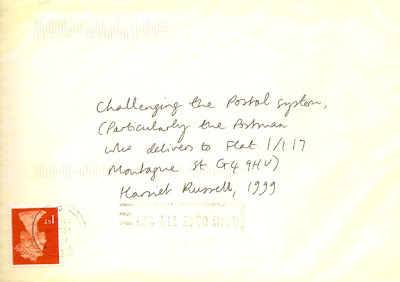 Challenging the Postal System,
(Particularly the Postman
who delivers to Flat 1/1 17
Montague St G4 9HU)
Harriet Russell, 1999
1ST